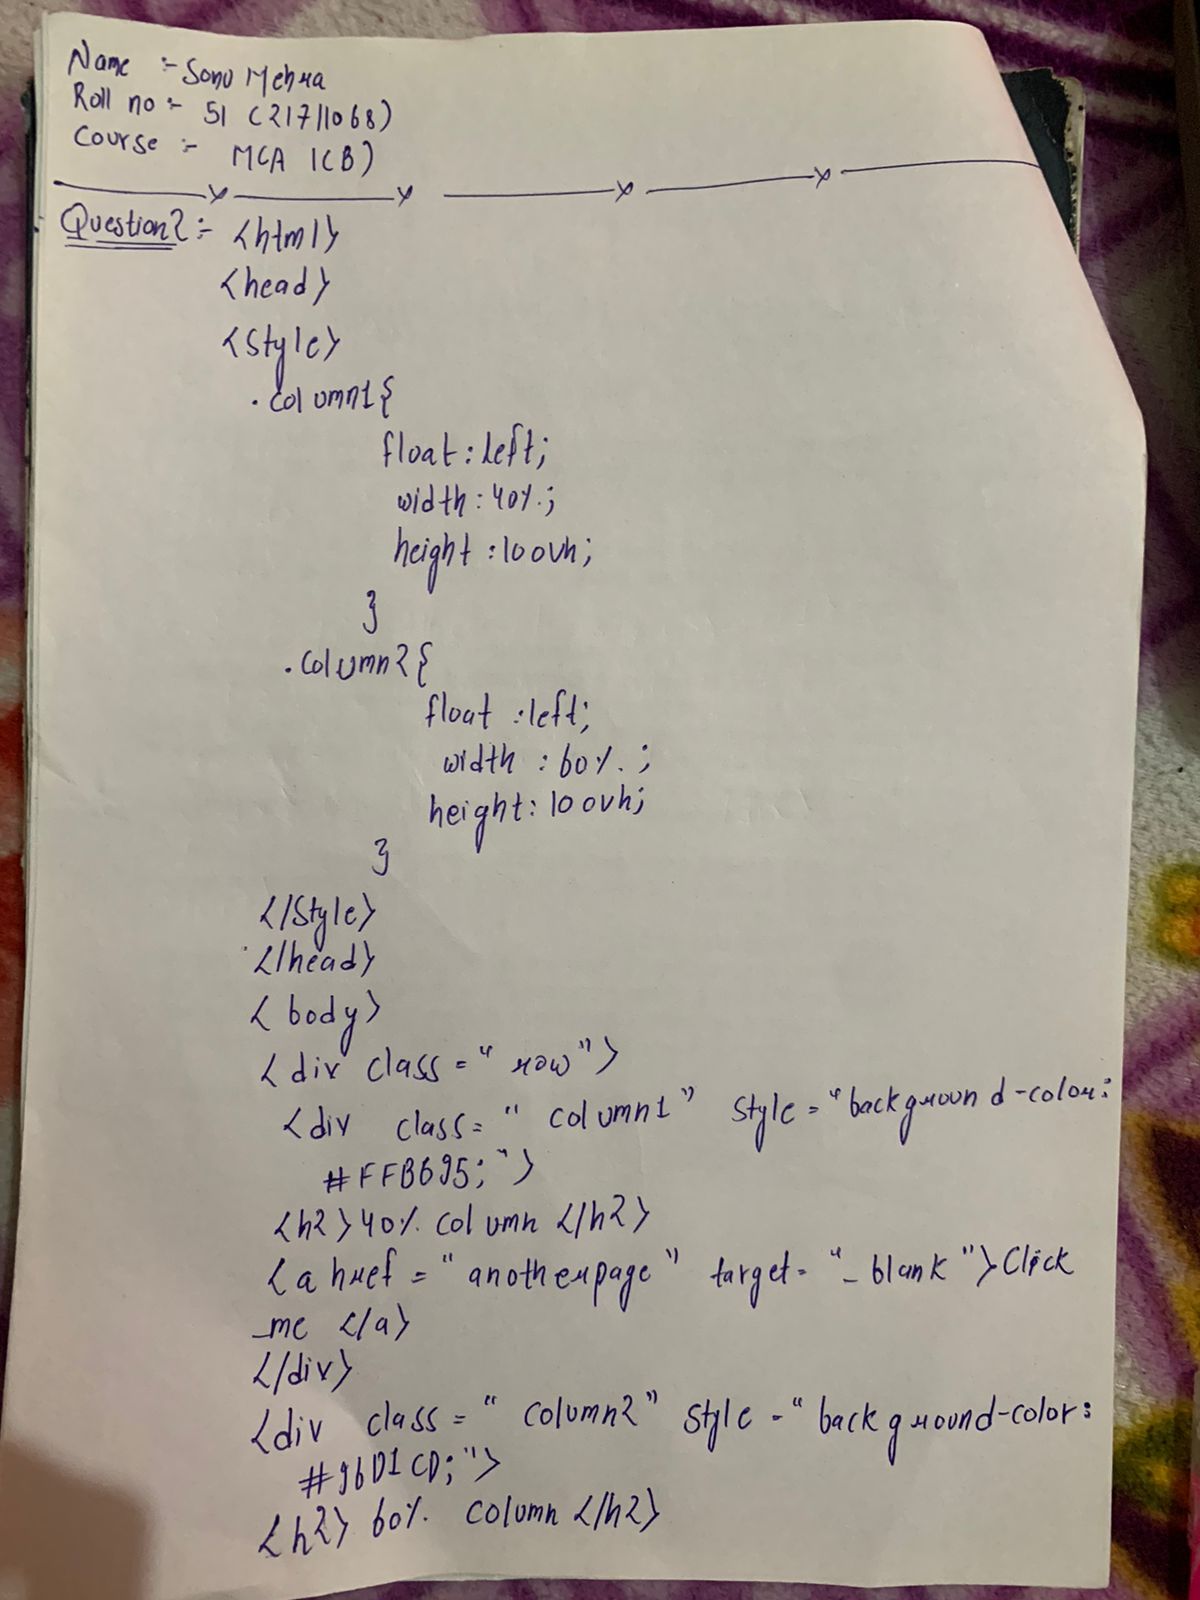 Name :- Sonu Mehra
Roll no :- 51 (21711068)
Course :- MCA 1(B)
Question2:- <html>
<head>
<style>
.column1{
float:left;
width:40%;
height:100vh;
}
.column2{
float:left;
width:60%;
height:100vh;
}
</style>
</head>
<body>
<div class="row">
<div class="column1" style="background-color:
#FFB695;">
<h2>40% column</h2>
<a href="anotherpage" target="_blank">Click
me </a>
</div>
<div class="column2" style="background-color:
#96D1CD;">
<h2>60% column</h2>